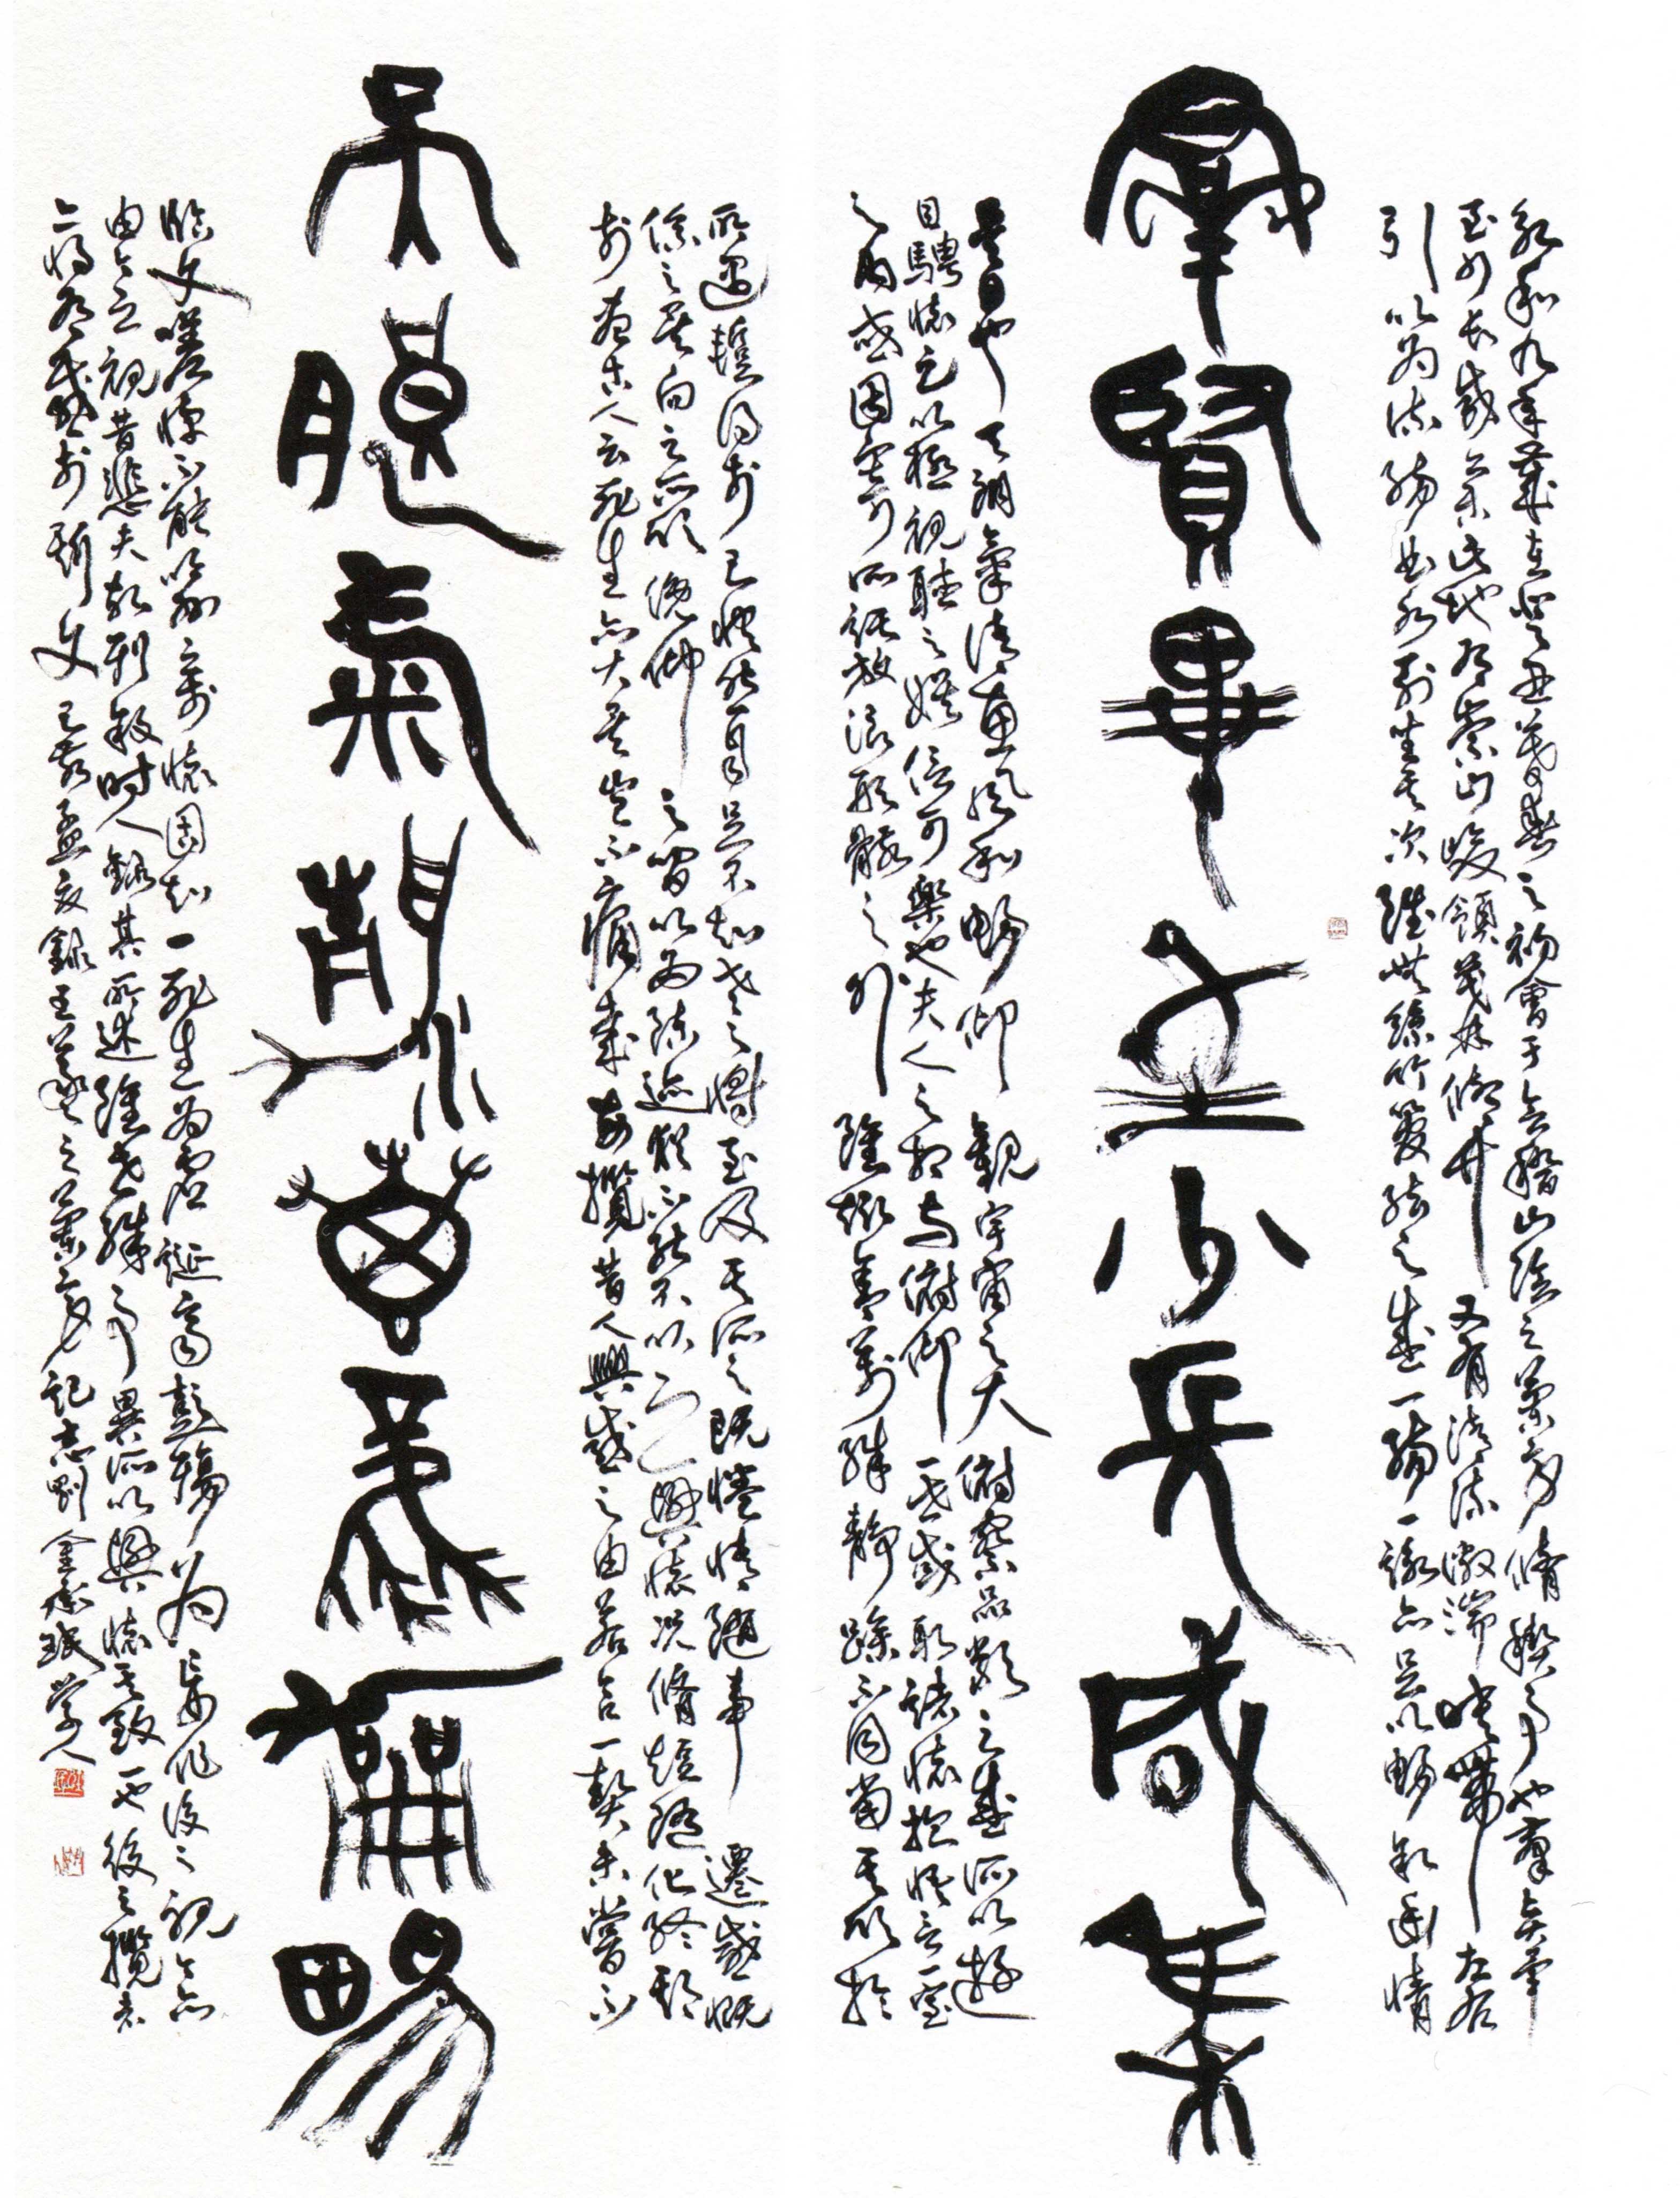 永和九年歲在癸丑暮春之初會于會稽山陰之蘭亭脩稧事也羣賢畢
至少長咸集此地有崇山峻領茂林脩竹又有清流激湍映帶左右
引以為流觴曲水列坐其次雖無絲竹管弦之盛一觴一詠亦足以暢敘幽情
羣賢畢至少長咸集
是日也天朗氣清惠風和暢仰觀宇宙之大俯察品類之盛所以遊
目騁懷足以極視聽之娛信可樂也夫人之相與俯仰一世或取諸懷抱悟言一室
之內或因寄所託放浪形骸之外雖趣舍萬殊靜躁不同當其欣於
所遇暫得於己快然自足不知老之將至及其所之既惓情隨事遷感慨
係之矣向之所欣俛仰之閒以為陳迹猶不能不以之興懷況脩短隨化終期
於盡古人云死生亦大矣豈不痛哉每攬昔人興感之由若合一契未嘗不
天朗氣清惠風龢暢
臨文嗟悼不能喻之於懷固知一死生為虛誕齊彭殤為妄作後之視今亦
由今之視昔悲夫故列敘時人錄其所述雖世殊事異所以興懷其致一也後之攬者
亦將有感於斯文 己亥孟夏錄王羲之蘭亭記 學人